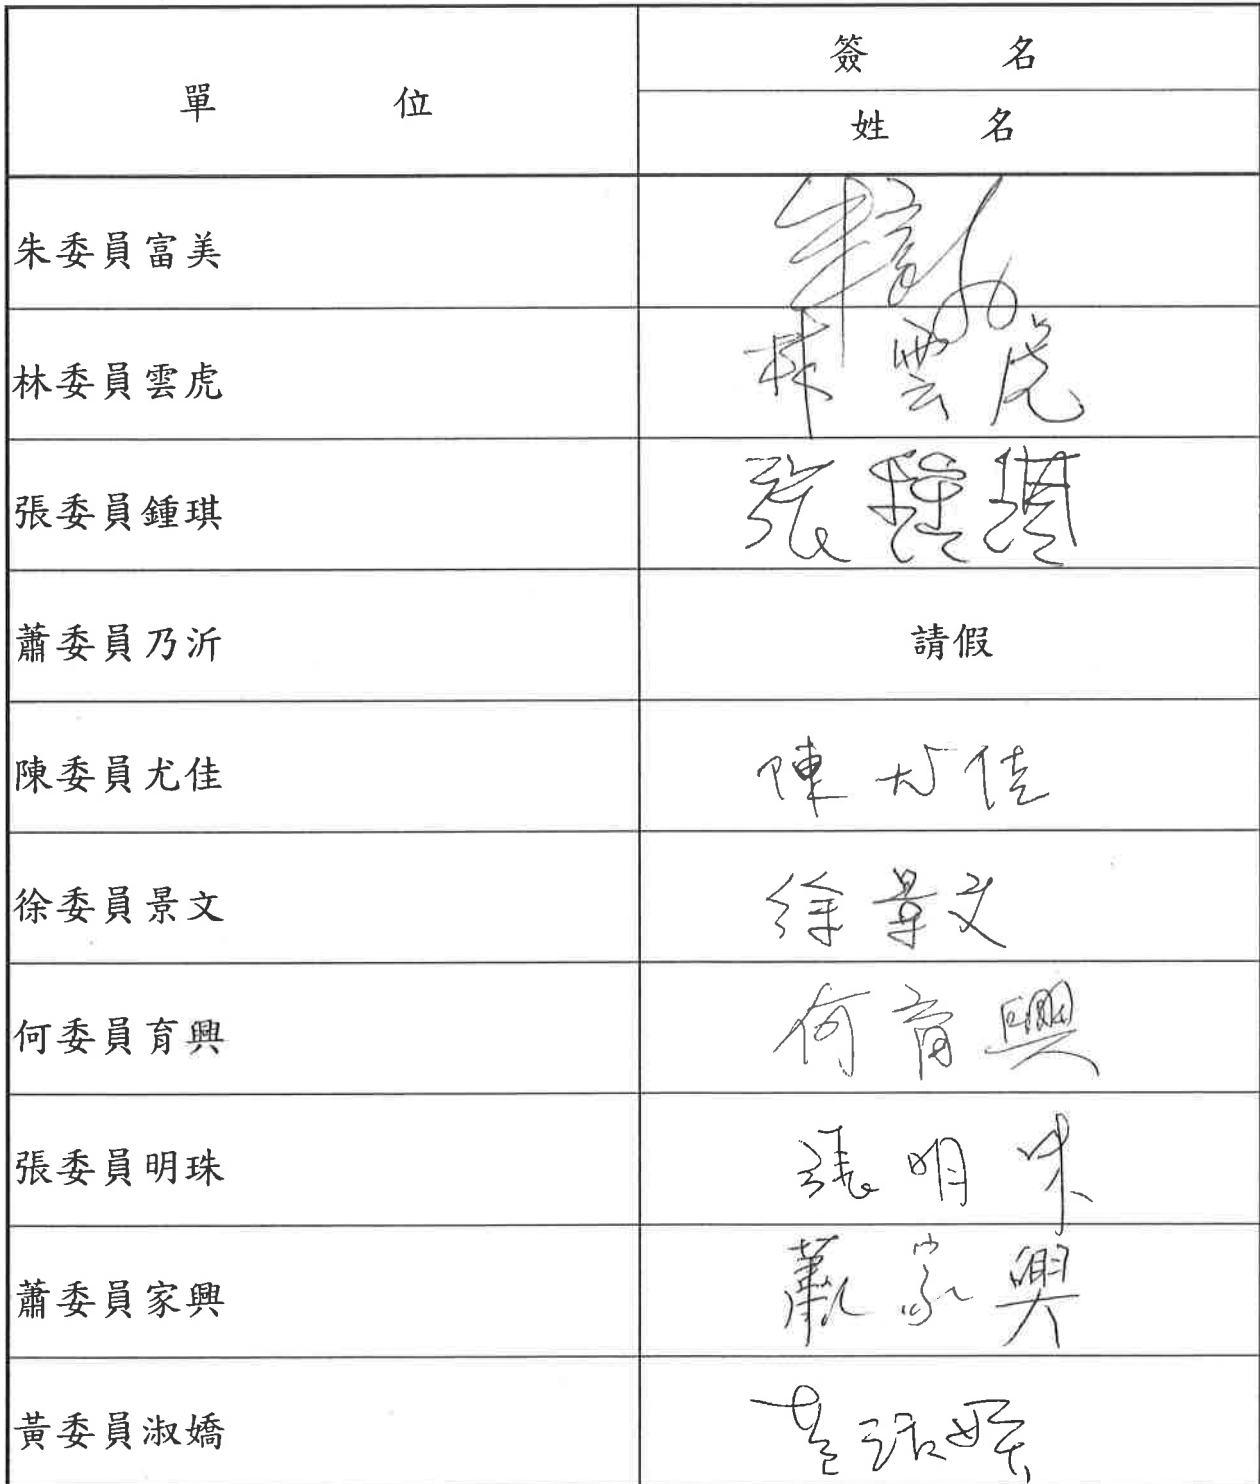 單 位
簽 名
姓 名
朱委員富美
林委員雲虎
林雲虎
張委員鍾琪
張鍾琪
蕭委員乃沂
請假
陳委員尤佳
陳尤佳
徐委員景文
徐景文
何委員育興
何育興
張委員明珠
張明珠
蕭委員家興
蕭家興
黃委員淑嬌